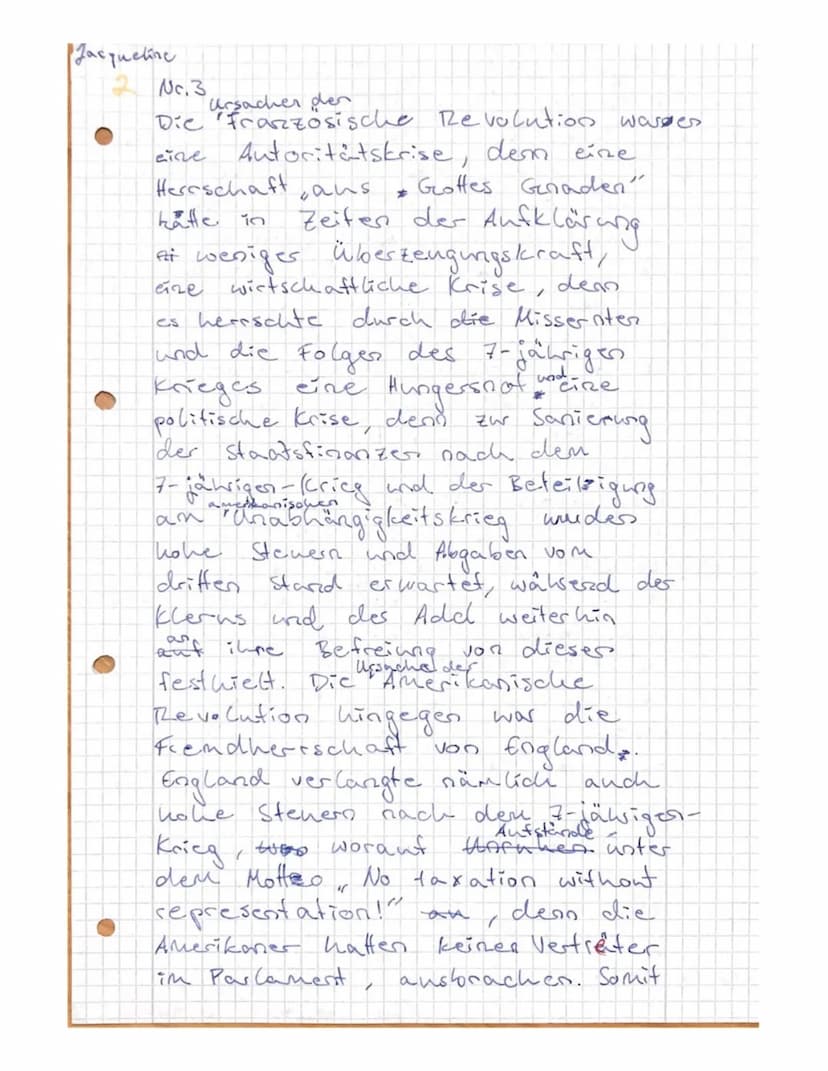 Jacqueline
2 Nr. 3
Ursachen der
Die Französische Revolution waren
eine Autoritätskrise, denn eine
Herrschaft „aus Gottes Gnaden"
hatte in Zeiten der Aufklärung
weniger Überzeugungskraft,
eine wirtschaftliche Krise, denn
es herrschte durch die Missernten
und die Folgen des 7-jährigen
Krieges eine Hungersnot und eine
politische Krise, denn zur Sanierung
der Staatsfinanzen nach dem
7-jährigen-Krieg und der Beteiligung
amerikanischen
am Unabhängigkeitskrieg wurden
hohe Steuern und Abgaben vom
dritten Stand erwartet, während der
Klerus und des Adel weiterhin
an
auf ihre Befreiung von dieser
Ursache der
festhielt. Die Amerikanische
Revolution hingegen war die
Fremdherrschaft von England.
England verlangte nämlich auch
hohe Steuern nach dem 7-jährigen-
Aufstände
Krieg, worauf Unruhen unter
dem Motto „No taxation without
representation!" an, denn die
Amerikaner hatten keinen Vertreter
im Parlament, ausbrachen. Somit